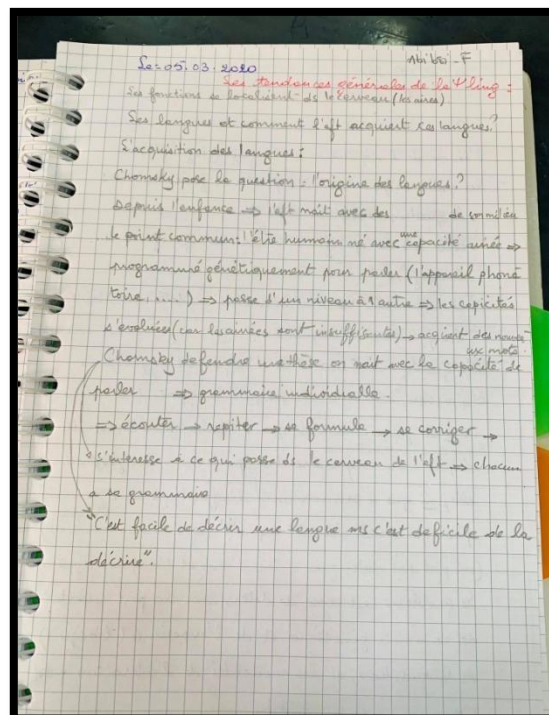 Le : 05. 03. 2020
Les tendances générales de la Ψ ling :
Les fonctions se localisent ds le cerveau (les aires)
Les langues et comment l'eft acquiert ces langues ?
L'acquisition des langues :
Chomsky pose la question : l'origine des langues ?
Depuis l'enfance ⇒ l'eft nait avec des de son milieu
le point commun : l'être humain né avec une capacité ainée ⇒
programmé génétiquement pour parler (l'appareil phona
toire, ....) ⇒ passe d'un niveau à l'autre ⇒ les capicités
s'évoluées (car les ainées sont insuffisantes) → acquient des nouveaux mots.
Chomsky defendre sa thèse on nait avec la capacité de
parler ⇒ grammaire individualle.
⇒ écouter → repiter → se formule → se corriger →
s'interesse à ce qui passe ds le cerveau de l'eft ⇒ chacun
a sa grammaire
"C'est facile de décrir une langue ms c'est deficile de la
décrire".